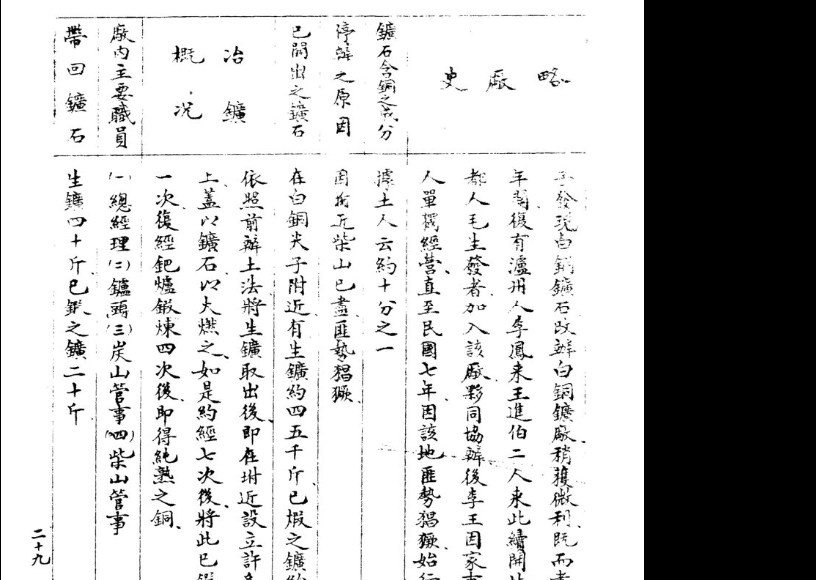 廠史略
子發現白銅鑛石改辦白銅鑛廠稍獲微利旣而
年間復有瀘州人李鳳來王進伯二人來此續開
都人毛生發者加入該廠夥同協辦後李王因家
人單獨經營直至民國七年因該地匪勢猖獗始行
鑛石含銅之成分
據土人云約十分之一
停辦之原因
因附近柴山已盡匪勢猖獗
已開出之鑛石
在白銅尖子附近有生鑛約四五千斤已煅之鑛約
冶鑛概況
依照前辦土法將生鑛取出後即在坿近設立許多
上蓋以鑛石以火燃之如是約經七次後將此已
一次復經鈀爐鍛煉四次後即得純熟之銅
廠內主要職員
(一)總經理(二)鑪頭(三)炭山管事(四)柴山管事
帶回鑛石
生鑛四十斤已煅之鑛二十斤
二十九